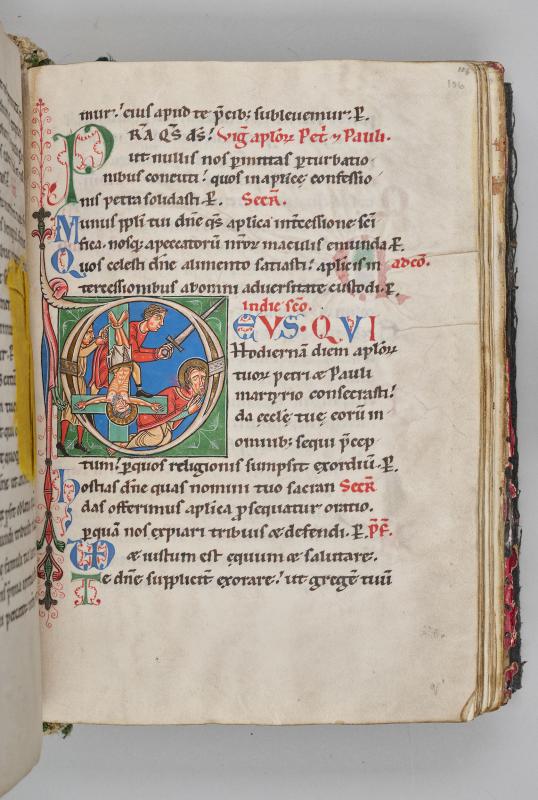 106
106
mur. eius apud te p̄cib; subleuemur. P.
PRA QS DS. Vig̃ aplor̄ Petri ⁊ Pauli.
ut nullis nos p̄mittas p̱turbatio
nibus concuti. quos in aplic̨e confessio
nis petra solidasti. P. Secr̄.
Munus ppli tui dn̄e qs aplica int̄cessione sc̄i
fica. nosq; a peccatorū nr̄or maculis emunda. P.
Quos celesti dn̄e alimento satiasti. aplicis in ad cō.
tercessionibus ab omni aduersitate custodi. P.
In die sc̄o.
DEVS · QVI
Hodiernā diem aplor
tuor petri & pauli
martyrio consecrasti.
da eccl̄e tuę eorū in
omnib; sequi p̄cep
tum. p̱ quos religionis sumpsit exordiū. P.
hostias dn̄e quas nomini tuo sacran Secr̄
das offerimus aplica p̱sequatur oratio.
p̱ quā nos expiari tribuis & defendi. P. P̄F̄.
VD & iustum est equum & salutare.
Te dn̄e supplicit̄ exorare. ut gregē tuū